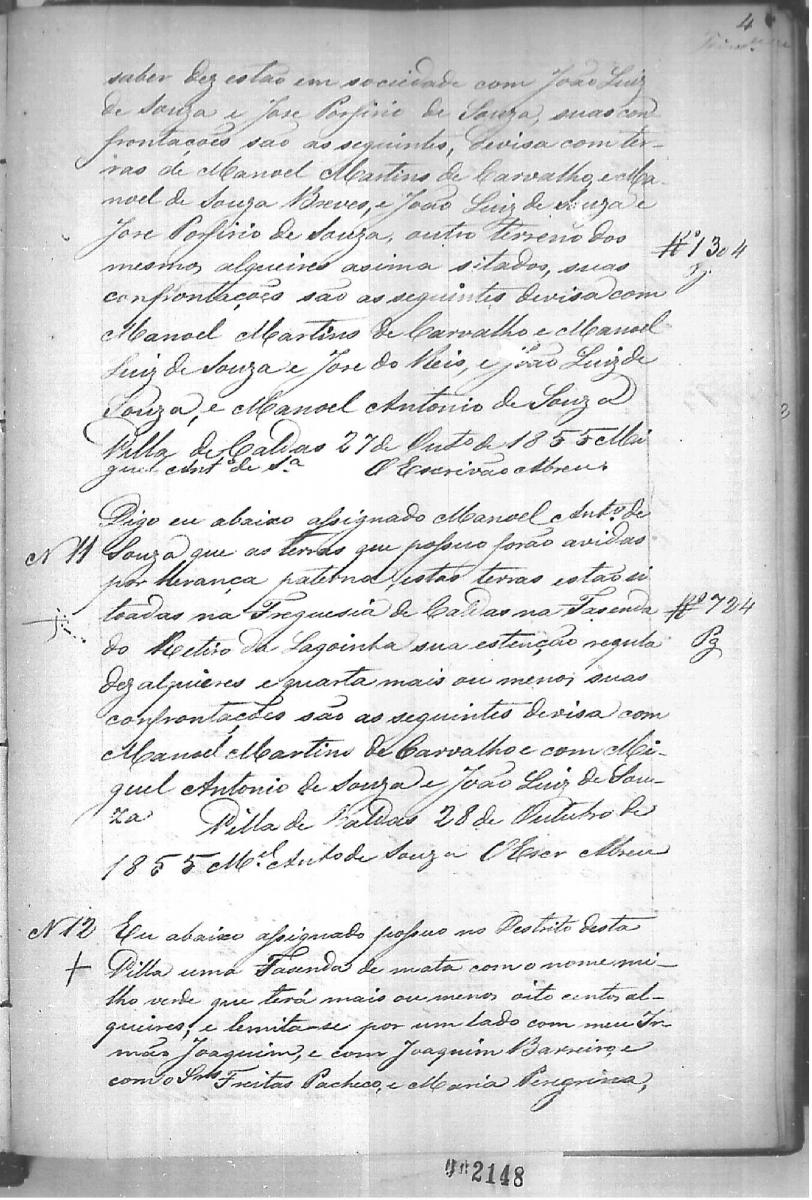 4
saber dez estão em sociedade com João Luiz
de Souza e Jose Porfirio de Souza, suas con-
frontacões são as seguintes, devisa com ter-
ras de Manoel Martins de Carvalho, e Ma-
noel de Souza Breves, e João Luiz de Souza e
Jose Porfirio de Souza, outro terreno dos
mesmos alqueires asima sitados, suas
confrontações são as seguintes devisa com
Manoel Martins de Carvalho e Manoel
Luiz de Souza e Jose do Reis, e João Luiz de
Souza, e Manoel Antonio de Souza
Villa de Caldas 27 de Outº de 1855 Mi
guel Antº de Sª O Escrivão Abreu
Rº 1304
Nº 11
Digo eu abaixo assignado Manoel Antº de
Souza que as terras que possuo forão avidas
por herança paterna, estas terras estão si
toadas na Freguesia de Caldas na Fasenda
do Retiro da Lagoinha sua estenção regula
dez alquieres e quarta mais ou menos suas
confrontacões são as seguintes devisa com
Manoel Martins de Carvalho e com Mi-
guel Antonio de Souza e João Luiz de Sou-
za Villa de Caldas 28 de Outubro de
1855 Mel Antº de Souza O Escr Abreu
Rº 724
Pg
Nº 12
Eu abaixo assignado possuo no Destrito desta
Villa uma Fasenda de mata com o nome mi-
lho verde que terá mais ou menos oito centos al-
queires, e lemita-se por um lado com meu Ir-
mão Joaquim, e com Joaquim Barreiro, e
com o Snrs Freitas Pacheco, e Maria Peregrina,
2148